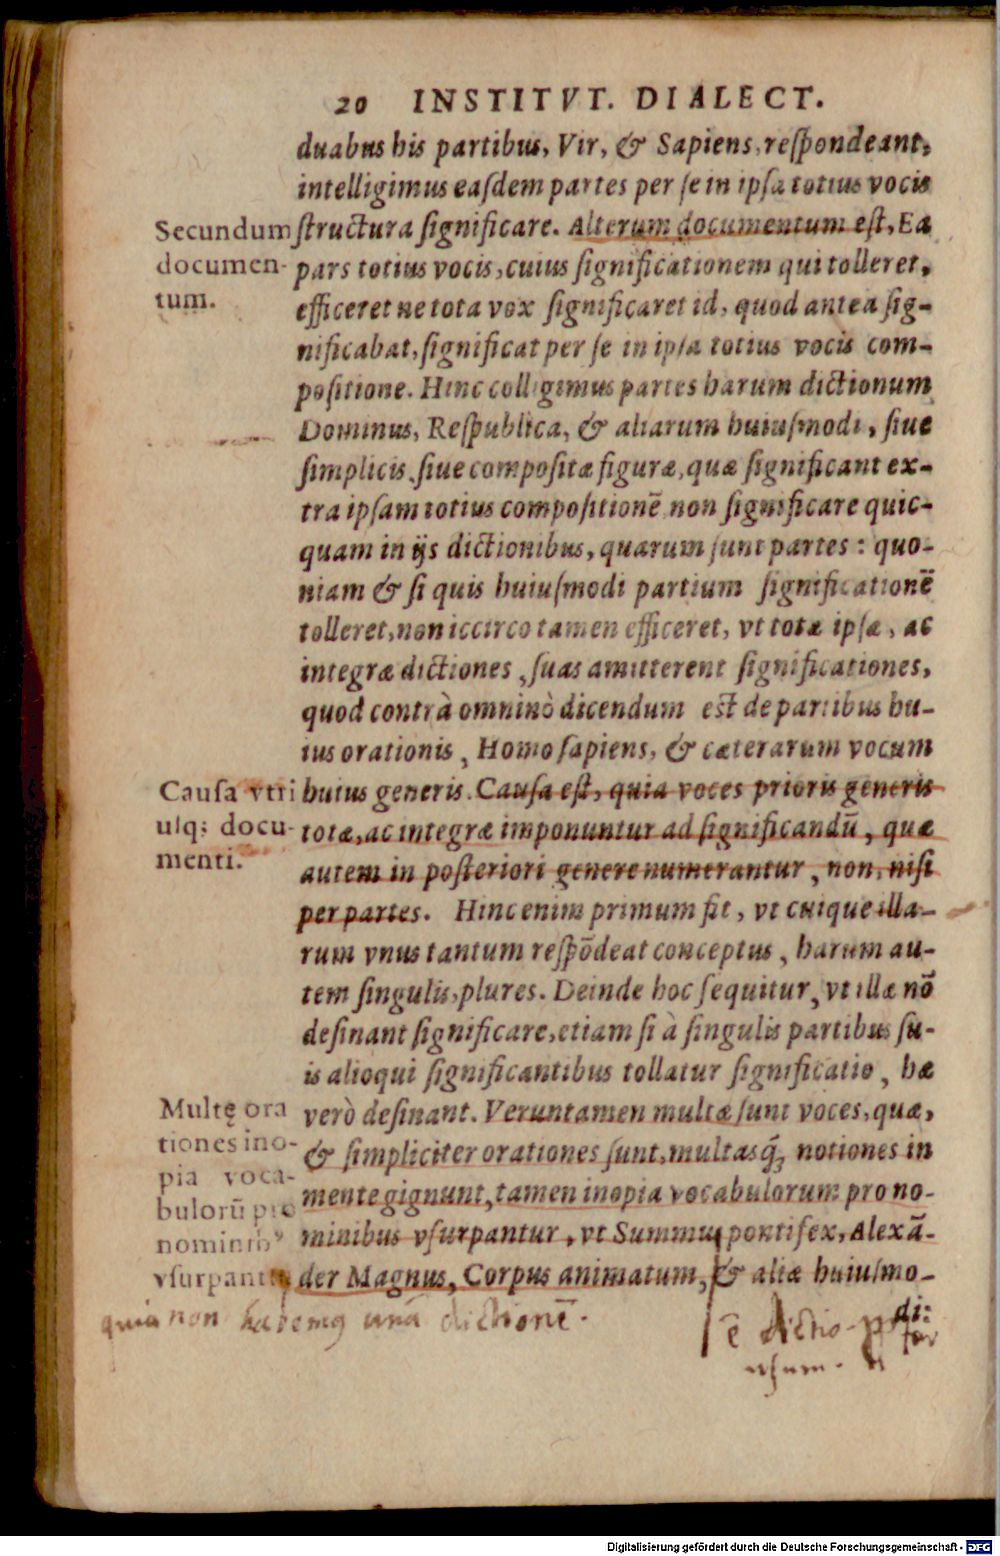 20 INSTITVT. DIALECT.
duabus his partibus, Vir, & Sapiens, reſpondeant,
intelligimus eaſdem partes per ſe in ipſa totius vocis
ſtructura ſignificare. Alterum documentum eſt, Ea
pars totius vocis, cuius ſignificationem qui tolleret,
efficeret ne tota vox ſignificaret id, quod antea ſig-
nificabat, ſignificat per ſe in ipſa totius vocis com-
poſitione. Hinc colligimus partes harum dictionum
Dominus, Reſpublica, & aliarum huiuſmodi, ſiue
ſimplicis, ſiue compoſitæ figuræ, quæ ſignificant ex-
tra ipſam totius compoſitionē non ſignificare quic-
quam in ijs dictionibus, quarum ſunt partes: quo-
niam & ſi quis huiuſmodi partium ſignificationē
tolleret, non iccirco tamen efficeret, vt totæ ipſæ, ac
integræ dictiones, ſuas amitterent ſignificationes,
quod contrà omninò dicendum eſt de partibus hu-
ius orationis, Homo ſapiens, & cæterarum vocum
huius generis. Cauſa eſt, quia voces prioris generis
totæ, ac integræ imponuntur ad ſignificandū, quæ
autem in poſteriori genere numerantur, non, niſi
per partes. Hinc enim primum fit, vt cuique illa-
rum vnus tantum reſpōdeat conceptus, harum au-
tem ſingulis, plures. Deinde hoc ſequitur, vt illæ nō
deſinant ſignificare, etiam ſi à ſingulis partibus ſu-
is alioqui ſignificantibus tollatur ſignificatio, hæ
verò deſinant. Veruntamen multæ ſunt voces, quæ,
& ſimpliciter orationes ſunt, multasq́; notiones in
mente gignunt, tamen inopia vocabulorum pro no-
minibus vſurpantur, vt Summus pontifex, Alexā-
der Magnus, Corpus animatum, & aliæ huiuſmo-
di:
Secundum
documen-
tum.
Cauſa vtri
uſq; docu-
menti.
Multę ora
tiones ino-
pia voca-
bulorū pro
nominibꝰ
vſurpantur
quia non habemꝰ unā dictionē.
ē dictio
uſum.
Digitalisierung gefördert durch die Deutsche Forschungsgemeinschaft - DFG